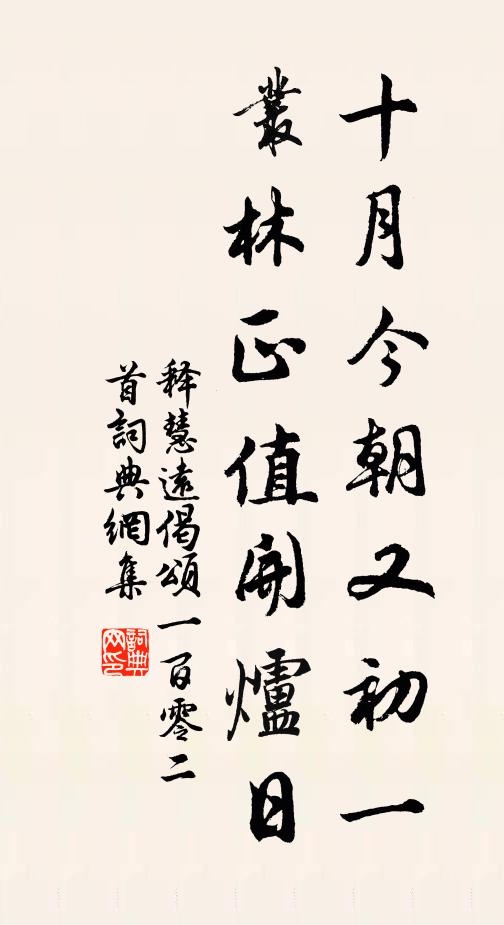 十月今朝又初一
叢林正值開爐日
释慧遠偈頌一百零二
首詞典網集
詞典网印